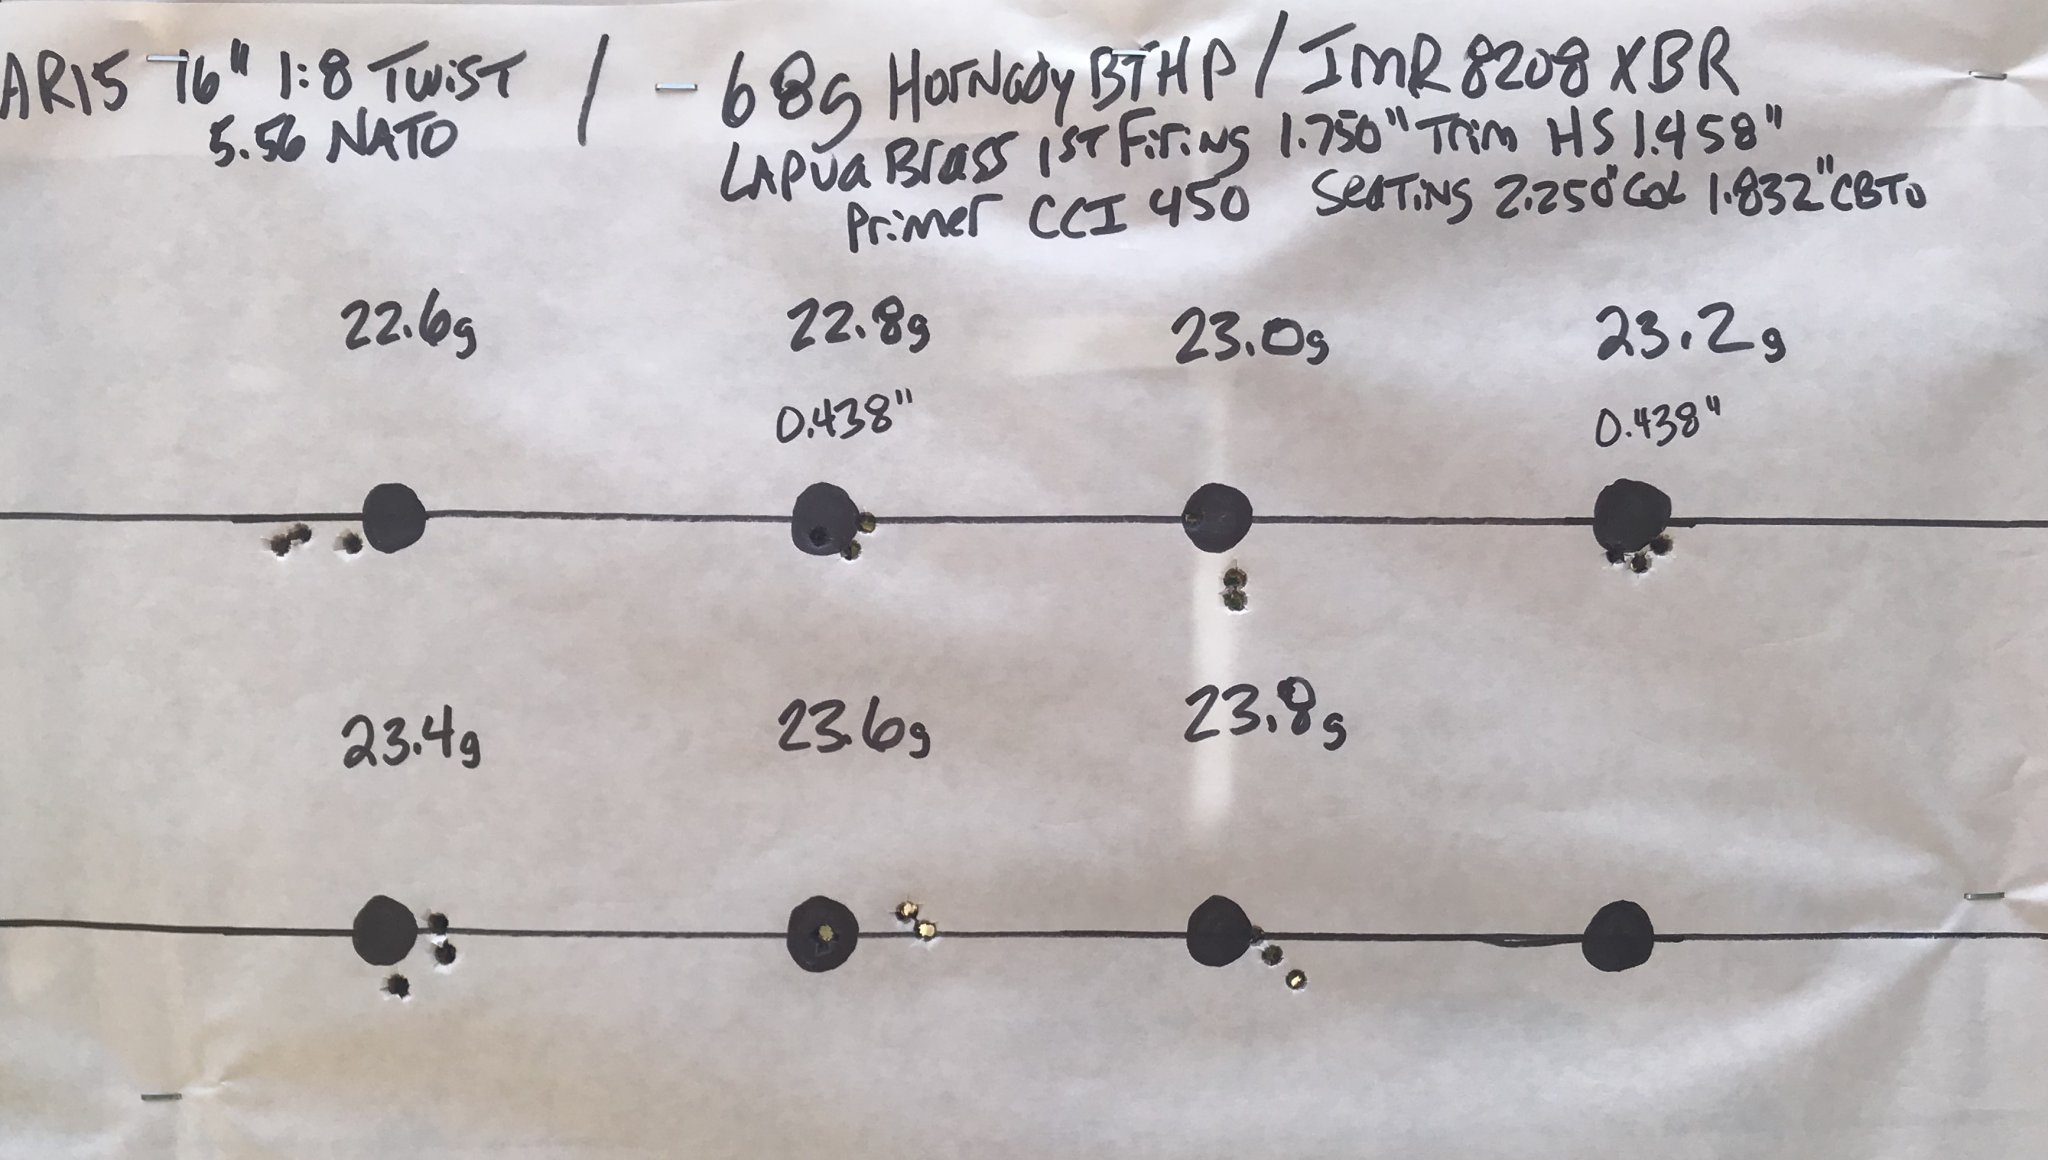 AR15 16" 1:8 TWIST / 68g HORNADY BTHP / IMR 8208 XBR
5.56 NATO
LAPUA BRASS 1ST FIRING 1.750" TRIM HS 1.458"
PRIMER CCI 450 SEATING 2.250" COL 1.832" CBTO
22.6g 22.8g 23.0g 23.2g
0.438" 0.438"
23.4g 23.6g 23.8g